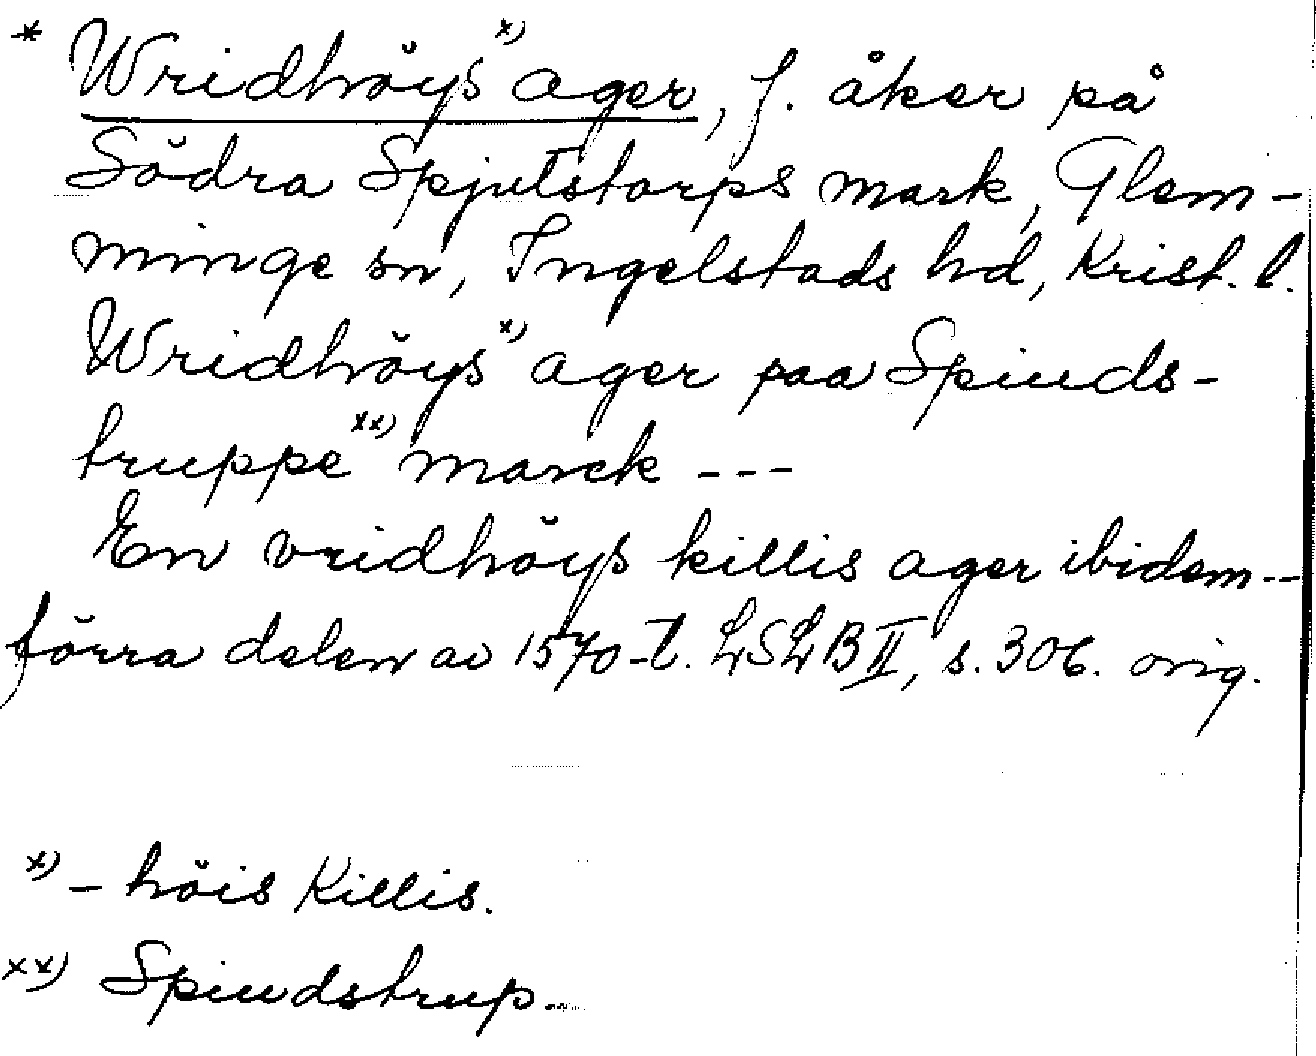 * Wridhöys x) ager, f. åker på
Södra Spjutstorps mark, Glem-
minge sn, Ingelstads hd, Krist. l.
Wridhöys x) ager paa Spiuds-
truppe xx) marck ---
En vridhöys killis ager ibidem --
förra delen av 1570-t. LSLB II, s. 306. orig.
x) - höis Killis.
xx) Spiudstrup.